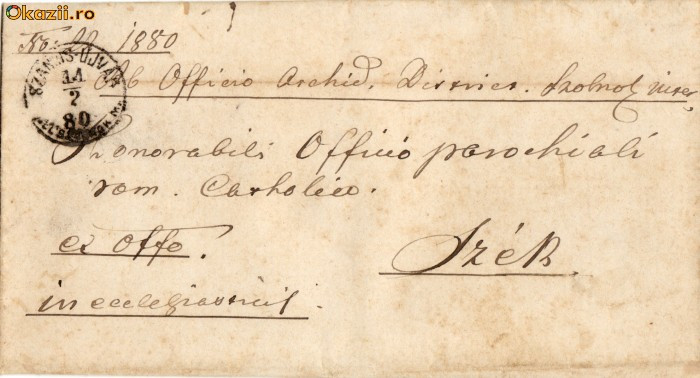 Okazii.ro
No 22. 1880
SZAMOS-UJVÁR
11
2
80
Ab Officio Archid. District. Szolnok inter.
Honorabili Officio parochiali
rom. Catholico.
ex Offo.
Szék.
in ecclesiasticis.